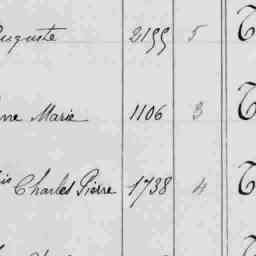 Auguste 2199 5
nne Marie 1106 3
ois Charles Pierre 1738 4